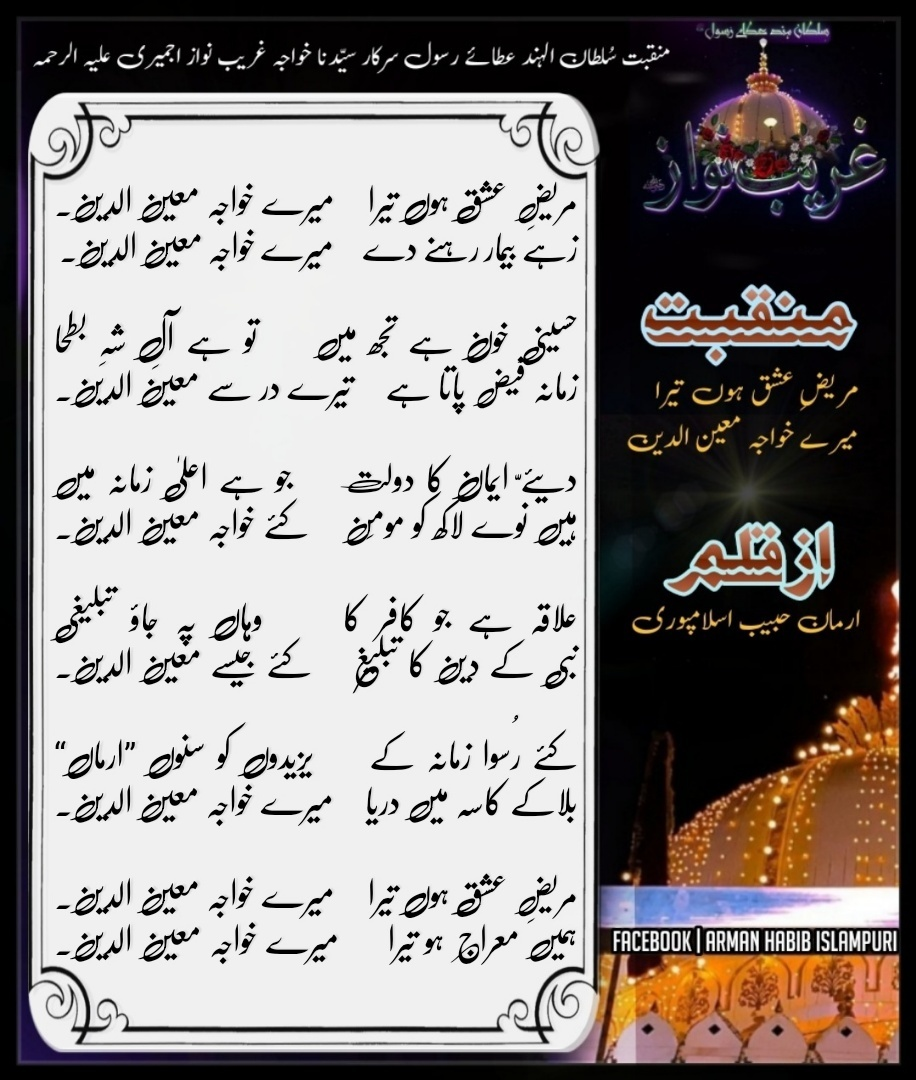 منقبت سُلطان الہند عطائے رسول سرکار سیّدنا خواجہ غریب نواز اجمیری علیہ الرحمہ
مریضِ عشق ہوں تیرا میرے خواجہ معین الدین۔
زہے بیمار رہنے دے میرے خواجہ معین الدین۔
حسینی خون ہے تجھ میں تو ہے آلِ شہِ بطحا
زمانہ فیض پاتا ہے تیرے در سے معین الدین۔
دیئے ایمان کا دولت جو ہے اعلیٰ زمانہ میں
ہیں نوے لاکھ کو مومن کئے خواجہ معین الدین۔
علاقہ ہے جو کافر کا وہاں پہ جاؤ تبلیغی
نبی کے دین کا تبلیغ کئے جیسے معین الدین۔
کئے رُسوا زمانہ کے یزیدوں کو سنوں ”ارمان“
بلاکے کاسہ میں دریا میرے خواجہ معین الدین۔
مریضِ عشق ہوں تیرا میرے خواجہ معین الدین۔
ہمیں معراج ہو تیرا میرے خواجہ معین الدین۔
سلطان ہند عطائے رسول
غریب نواز
منقبت
مریضِ عشق ہوں تیرا
میرے خواجہ معین الدین
از قلم
ارمان حبیب اسلامپوری
FACEBOOK | ARMAN HABIB ISLAMPURI